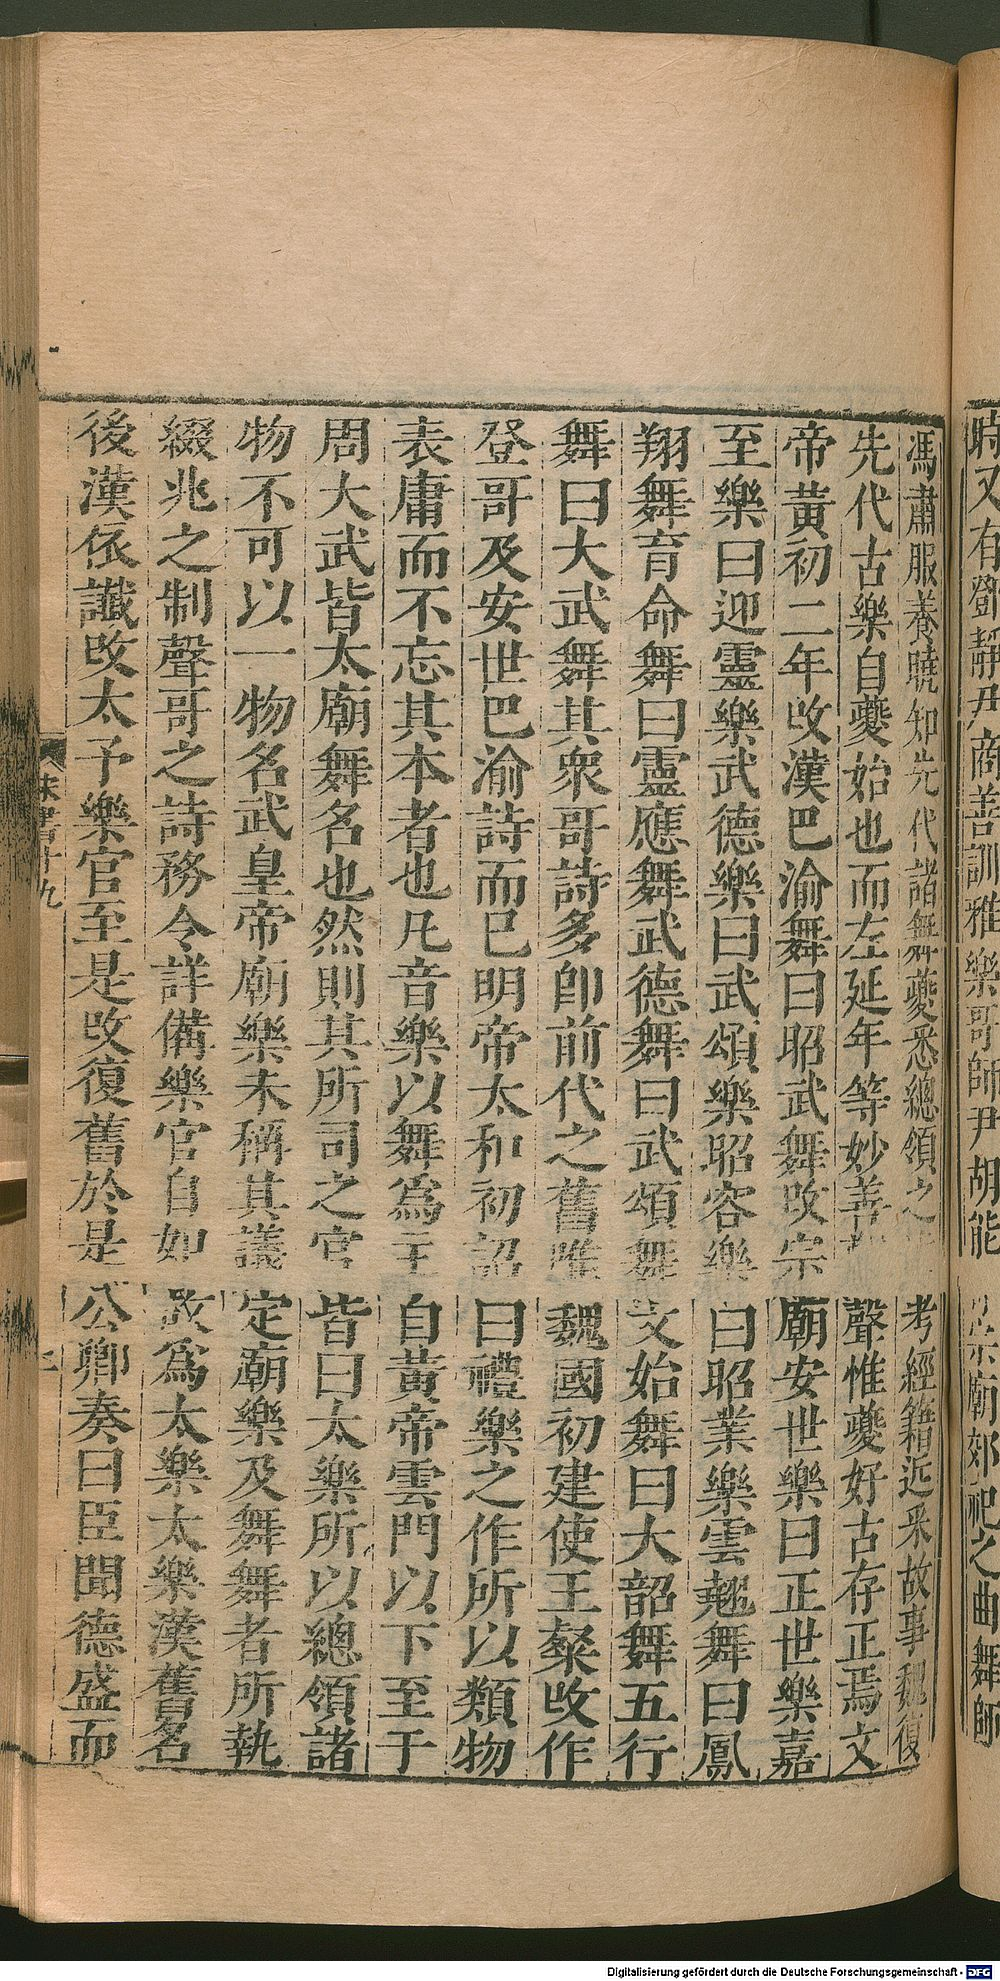 時又有鄧靜尹商善訓雅樂哥師尹胡能宗廟郊祀之曲舞師
馮肅服養曉知先代諸舞夔悉總領之考經籍近采故事魏復
先代古樂自夔始也而左延年等妙善聲惟夔好古存正焉文
帝黃初二年改漢巴渝舞曰昭武舞改宗廟安世樂曰正世樂嘉
至樂曰迎靈樂武德樂曰武頌樂昭容樂曰昭業樂雲翹舞曰鳳
翔舞育命舞曰靈應舞武德舞曰武頌舞文始舞曰大韶舞五行
舞曰大武舞其衆哥詩多卽前代之舊唯魏國初建使王粲改作
登哥及安世巴渝詩而已明帝太和初詔曰禮樂之作所以類物
表庸而不忘其本者也凡音樂以舞爲主自黃帝雲門以下至于
周大武皆太廟舞名也然則其所司之官皆曰太樂所以總領諸
物不可以一物名武皇帝廟樂未稱其議定廟樂及舞舞者所執
綴兆之制聲哥之詩務令詳備樂官自如故爲太樂太樂漢舊名
後漢依讖改太予樂官至是改復舊於是公卿奏曰臣聞德盛而
書十九
Digitalisierung gefördert durch die Deutsche Forschungsgemeinschaft - DFG